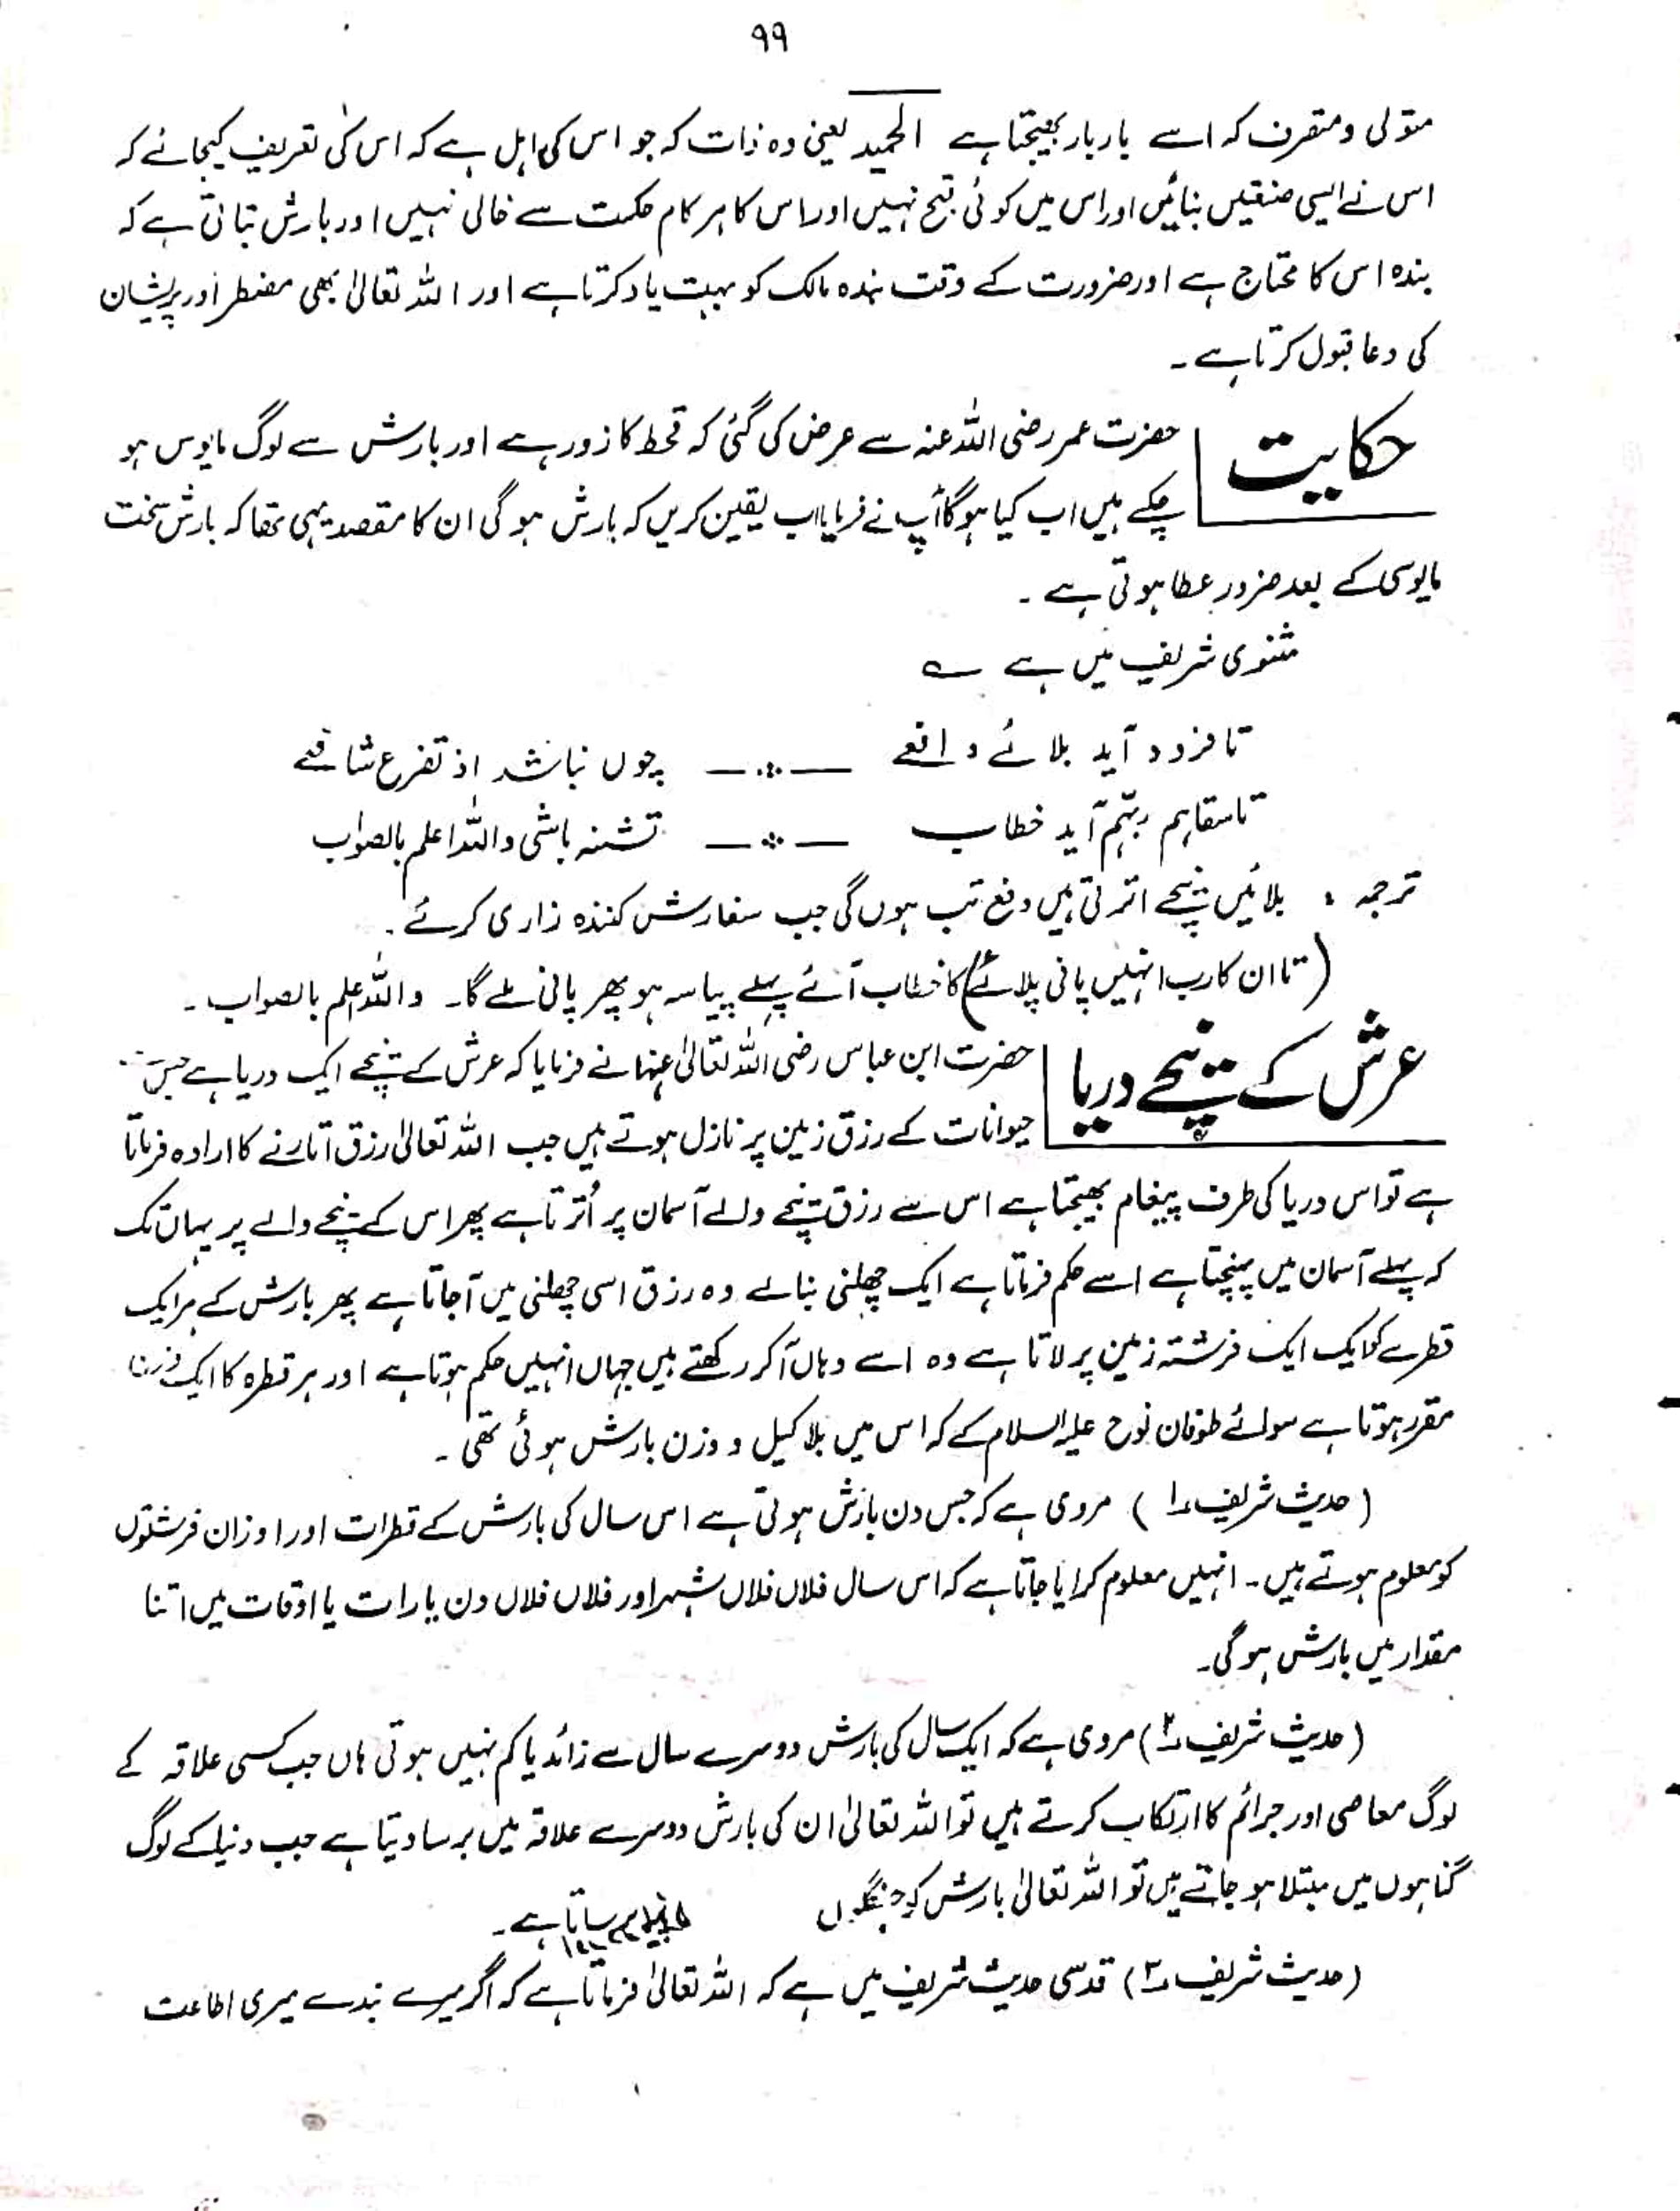 ۹۹
متولی و متصرف کہ اسے بار بار بھیجتا ہے الحمید یعنی وہ ذات کہ جو اس کی اہل ہے کہ اس کی تعریف کیجائے کہ
اس نے ایسی صنعتیں بنائیں اور اس میں کوئی قبح نہیں اور اس کا ہر کام حکمت سے خالی نہیں اور بارش بتاتی ہے کہ
بندہ اس کا محتاج ہے اور ضرورت کے وقت بندہ مالک کو بہت یاد کرتا ہے اور اللہ تعالیٰ بھی مضطر اور پریشان
کی دعا قبول کرتا ہے۔
حکایت
حضرت عمر رضی اللہ عنہ سے عرض کی گئی کہ قحط کا زور ہے اور بارش سے لوگ مایوس ہو
چکے ہیں اب کیا ہوگا آپ نے فرمایا اب یقین کریں کہ بارش ہو گی ان کا مقصد یہی تھا کہ بارش سخت
مایوسی کے بعد ضرور عطا ہوتی ہے۔
مثنوی شریف میں ہے ؎
تا فرود آید بلائے دافعے ـــ ٭ ـــ چوں نباشد از تضرع شافعے
تا سقاہم ربہم آید خطاب ـــ ٭ ـــ تشنہ باشی واللہ اعلم بالصواب
ترجمہ : بلائیں نیچے اترتی ہیں دفع تب ہوں گی جب سفارش کنندہ زاری کرئے۔
(تا ان کا رب انہیں پانی پلائے) کا خطاب آئے پہلے پیاسہ ہو پھر پانی ملے گا۔ واللہ علم بالصواب۔
عرش کے نیچے دریا
حضرت ابن عباس رضی اللہ تعالیٰ عنہما نے فرمایا کہ عرش کے نیچے ایک دریا ہے جس
حیوانات کے رزق زمین پر نازل ہوتے ہیں جب اللہ تعالیٰ رزق اتارنے کا ارادہ فرماتا
ہے تو اس دریا کی طرف پیغام بھیجتا ہے اس سے رزق نیچے والے آسمان پر اُترتا ہے پھر اس کے نیچے والے پر یہاں تک
کہ پہلے آسمان میں پہنچتا ہے اسے حکم فرماتا ہے ایک چھلنی بنالے وہ رزق اسی چھلنی میں آجاتا ہے پھر بارش کے ہر ایک
قطرے کو ایک ایک فرشتہ زمین پر لاتا ہے وہ اسے وہاں آکر رکھتے ہیں جہاں انہیں حکم ہوتا ہے اور ہر قطرہ کا ایک وزن
مقرر ہوتا ہے سوائے طوفان نوح علیہ السلام کے کہ اس میں بلا کیل و وزن بارش ہوئی تھی۔
(حدیث شریف ۱) مروی ہے کہ جس دن بارش ہوتی ہے اس سال کی بارش کے قطرات اور اوزان فرشتوں
کو معلوم ہوتے ہیں۔ انہیں معلوم کرایا جاتا ہے کہ اس سال فلاں فلاں شہر اور فلاں فلاں دن یا رات یا اوقات میں اتنا
مقدار میں بارش ہو گی۔
(حدیث شریف ۲) مروی ہے کہ ایک سال کی بارش دوسرے سال سے زائد یا کم نہیں ہوتی ہاں جب کسی علاقہ کے
لوگ معاصی اور جرائم کا ارتکاب کرتے ہیں تو اللہ تعالیٰ ان کی بارش دوسرے علاقہ میں برسا دیتا ہے جب دنیا کے لوگ
گناہوں میں مبتلا ہو جاتے ہیں تو اللہ تعالیٰ بارش کو جنگلوں برساتا ہے۔
(حدیث شریف ۳) قدسی حدیث شریف میں ہے کہ اللہ تعالیٰ فرماتا ہے کہ اگر میرے بندے میری اطاعت